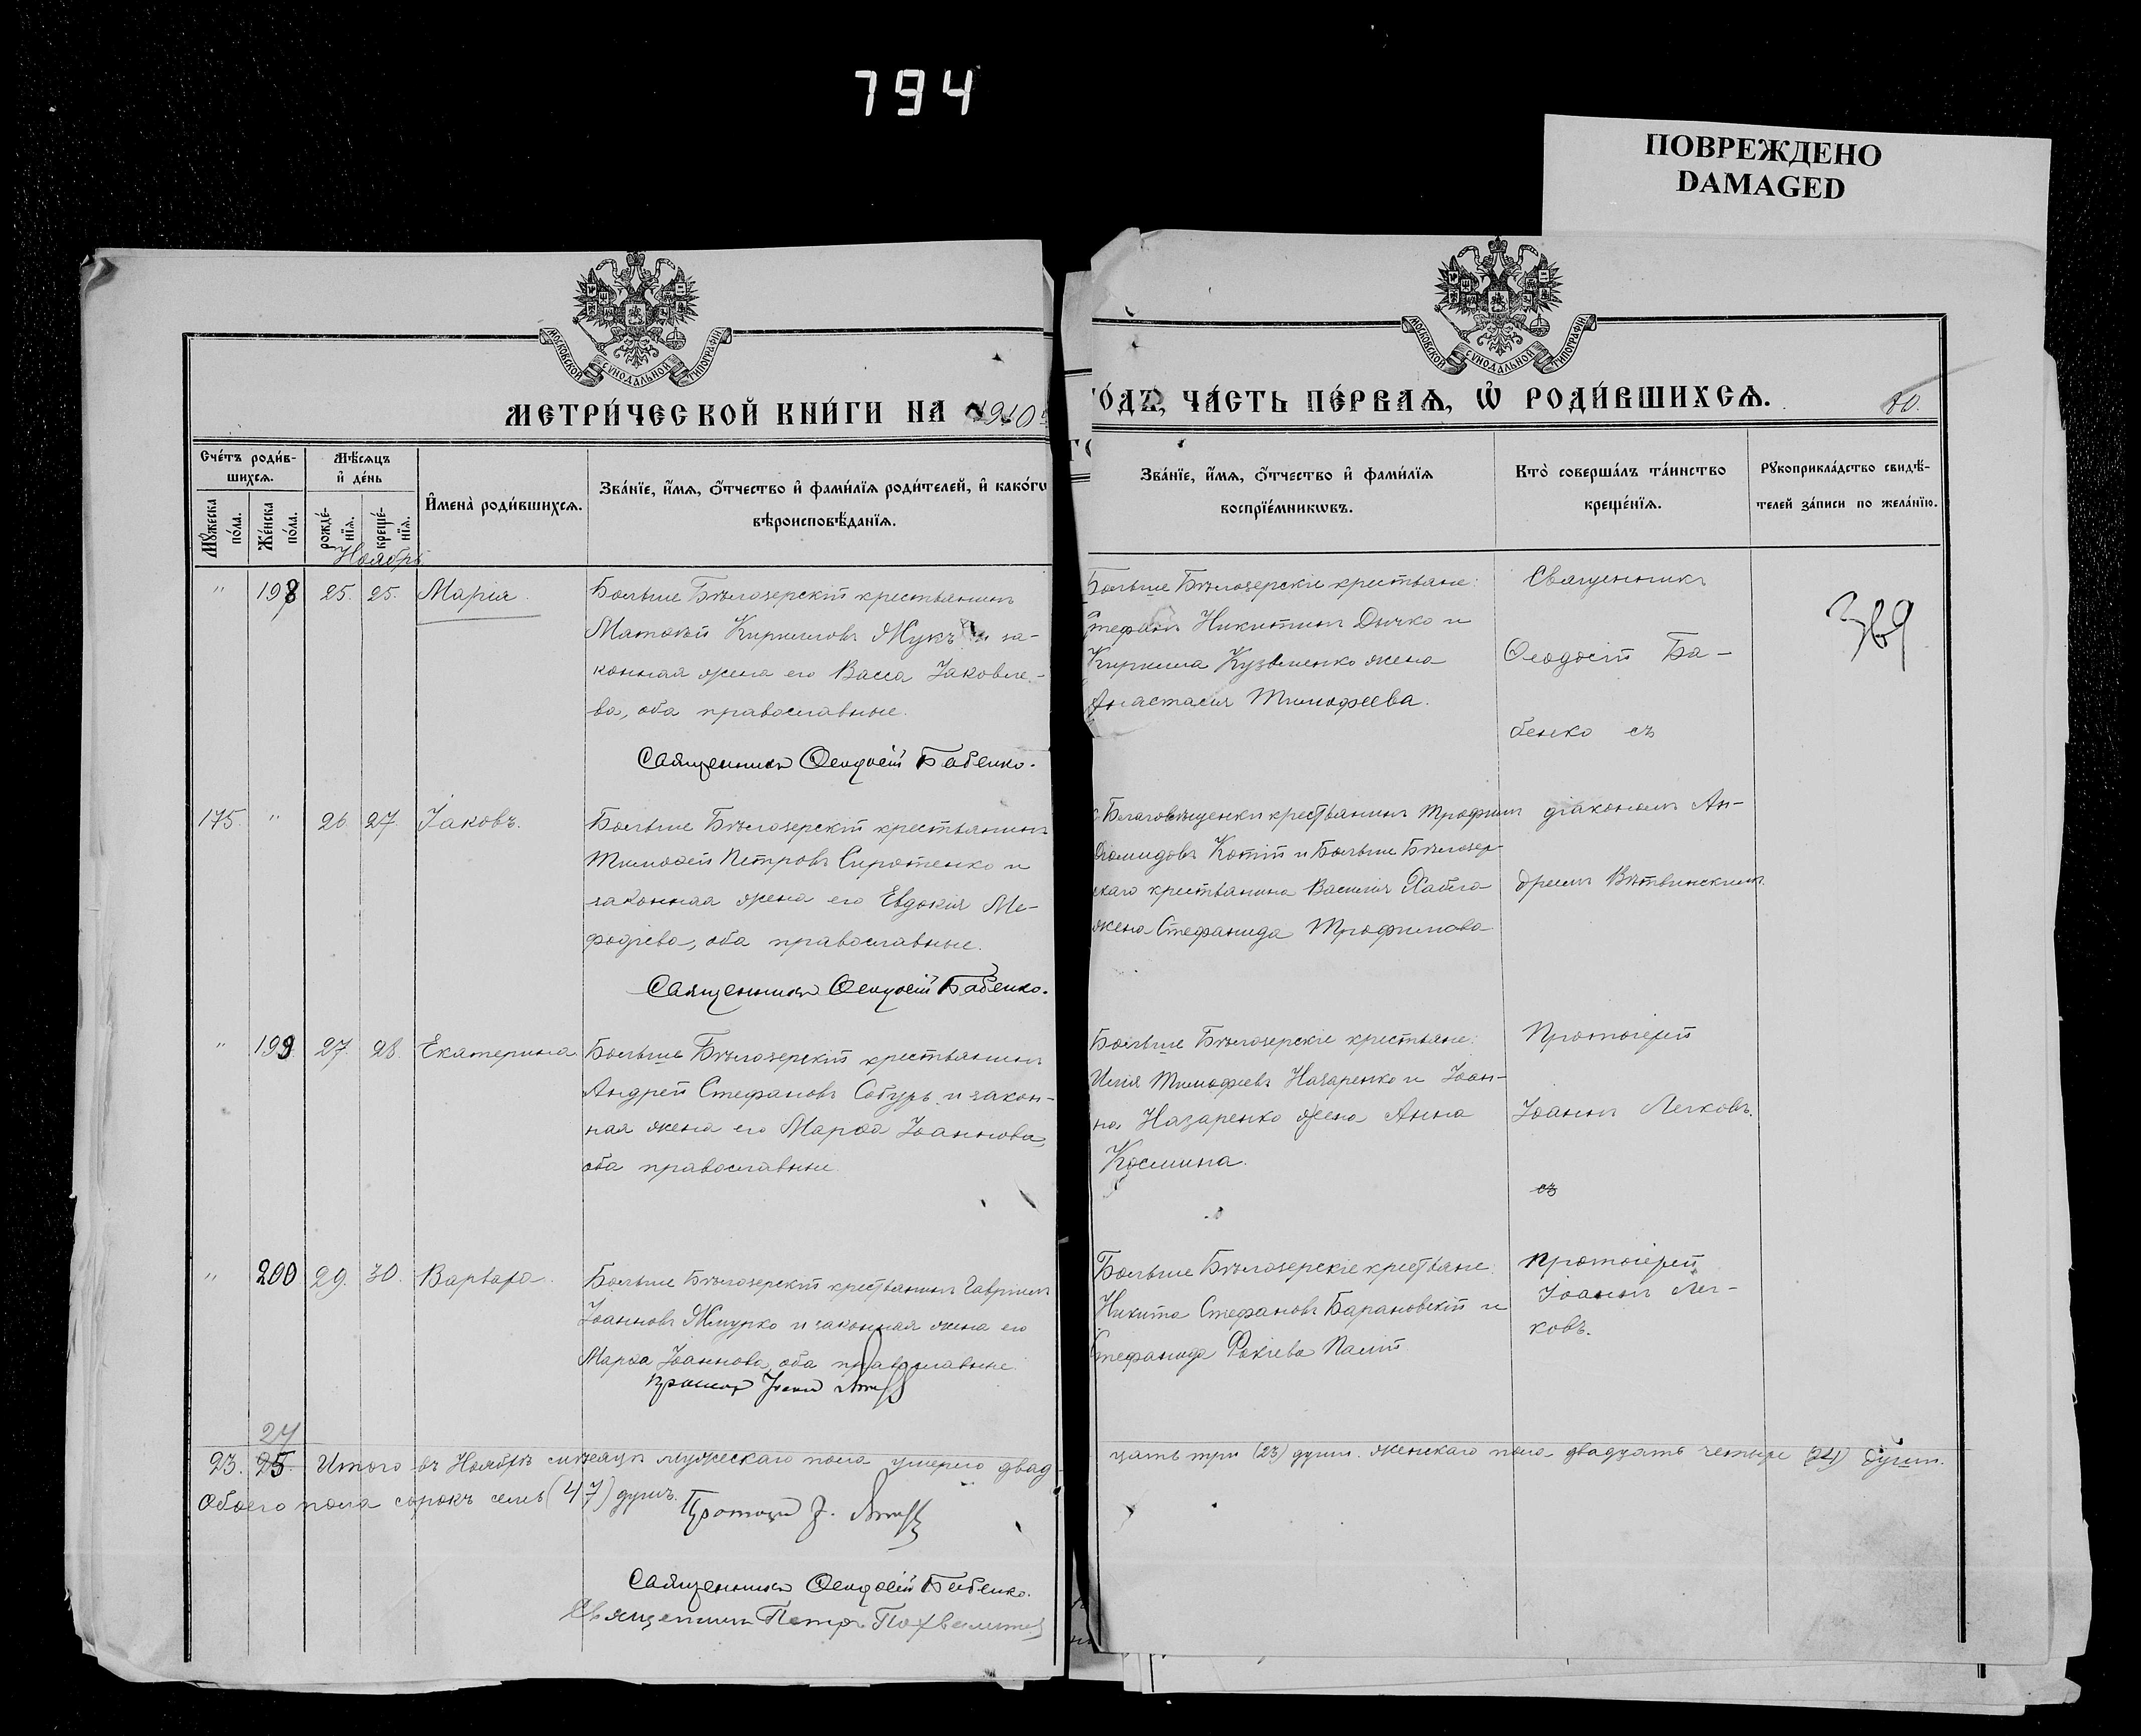 794
ПОВРЕЖДЕНО
DAMAGED
МОСКОВСКОЙ СУНОДАЛЬНОЙ ТИПОГРАФІИ
МОСКОВСКОЙ СУНОДАЛЬНОЙ ТИПОГРАФІИ
МЕТРИ́ЧЕСКОЙ КНИ́ГИ НА 1910
ГО́ДЪ, ЧА́СТЬ ПЕ́РВАѦ, Ѡ РОДИ́ВШИХСѦ.
80.
Сче́тъ роди́в-
шихсѧ.
Мꙋжеска по́ла.
Же́нска по́ла.
Мѣ́сѧцъ
и де́нь
рожде́-
нїѧ.
креще́-
нїѧ.
Имена̀ роди́вшихсѧ.
Зва́нїе, и́мѧ, ѻ́тчество и фами́лїѧ роди́телей, и како́гѡ
вѣроисповѣ́данїѧ.
Зва́нїе, и́мѧ, ѻ́тчество и фами́лїѧ
воспрїе́мникѡвъ.
Кто̀ соверша́лъ та́инство
креще́нїѧ.
Рꙋкоприкла́дство свидѣ́-
телей за́писи по жела́нїю.
Ноябрь
" 198 25. 25. Марія.
Больше Бѣлозерскій крестьянинъ
Матѳей Кирилловъ Жукъ и за-
конная жена его Васса Іаковле-
ва, оба православные.
Священникъ Ѳеодосій Бабенко.
Больше Бѣлозерскіе крестьяне:
Стефанъ Никитинъ Дычко и
Кирилла Кузьменко жена
Анастасія Тимофеева.
Священникъ
Ѳеодосій Ба-
бенко съ
369
175. " 26. 27. Іаковъ.
Больше Бѣлозерскій крестьянинъ
Тимофей Петровъ Сиротенко и
законная жена его Евдокія Ме-
фодіева, оба православные.
Священникъ Ѳеодосій Бабенко.
с. Благовѣщенки крестьянинъ Трофимъ
Діомидовъ Котій и Больше Бѣлозер-
скаго крестьянина Василія жена Стефанида Трофимова
діакономъ Ан-
дреемъ Вѣтвинскимъ.
" 199 27. 28. Екатерина
Больше Бѣлозерскій крестьянинъ
Андрей Стефановъ Собуръ и закон-
ная жена его Марѳа Іоаннова,
оба православные.
Больше Бѣлозерскіе крестьяне:
Илія Тимофеевъ Назаренко и Іоан-
на Назаренко жена Анна
Космина.
Протоіерей
Іоаннъ Легковъ.
съ
" 200 29. 30. Варвара.
Больше Бѣлозерскій крестьянинъ Гавріилъ
Іоанновъ Жмурко и законная жена его
Марѳа Іоаннова, оба православные.
Больше Бѣлозерскіе крестьяне:
Никита Стефановъ Барановскій и
Стефанида Фокіева Палій
Протоіерей
Іоаннъ Лег-
ковъ.
24
23. 25. Итого въ Ноябрѣ мѣсяцѣ мужескаго пола умерло двад-
цать три (23) души. женскаго пола двадцать четыре (24) души.
Обоего пола сорокъ семь (47) душъ.
Священникъ Ѳеодосій Бабенко.
Священникъ Петръ